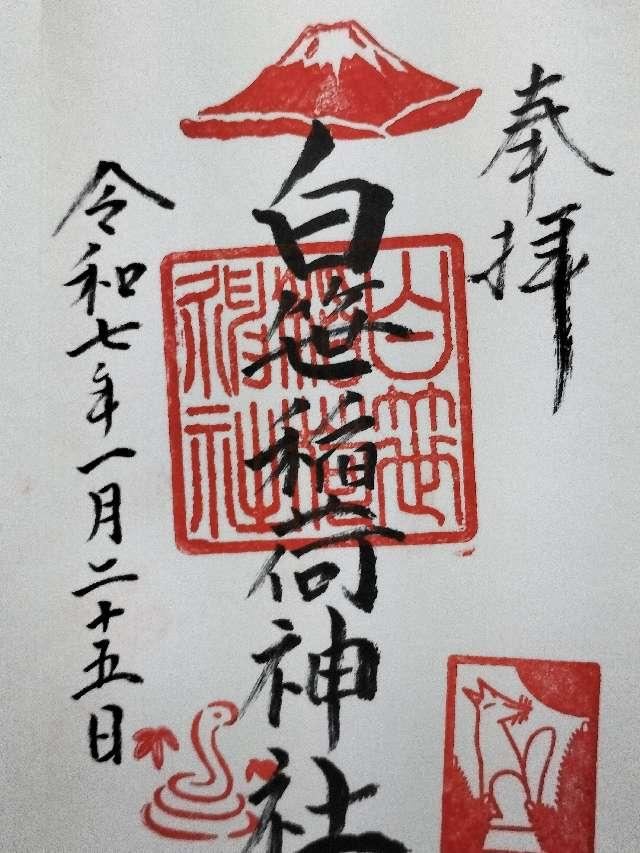 奉拝
白笹稲荷神社
白笹稲荷神社
令和七年一月二十五日